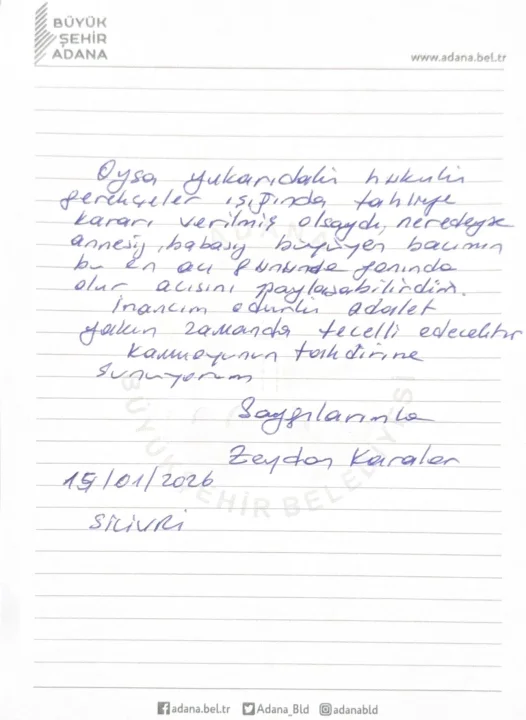 BÜYÜK
ŞEHİR
ADANA
www.adana.bel.tr
Oysa yukarıdaki hukuki
gerekçeler ışığında tahliye
kararı verilmiş olsaydı, neredeyse
annesiz, babasız büyüyen bacımın
bu en acı gününde yanında
olur acısını paylaşabilirdim.
İnancım odurki adalet
yakın zamanda tecelli edecektir
Kamuoyunun takdirine
sunuyorum
Saygılarımla
Zeydan Karalar
15/01/2026
SİLİVRİ
BÜYÜKŞEHİR BELEDİYESİ
adana.bel.tr Adana_Bld adanabld